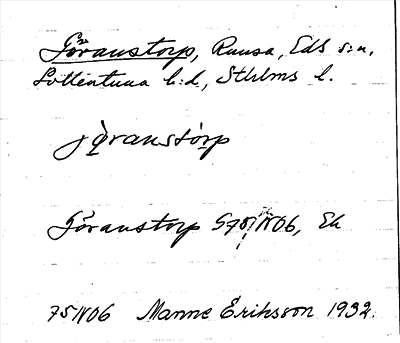 Göranstorp, Runsa, Eds s:n,
Sollentuna h:d, Sthlms l.
jǫ̀ranstòrp
Göranstorp S75/1806, Ek
75/1806 Manne Eriksson 1932.